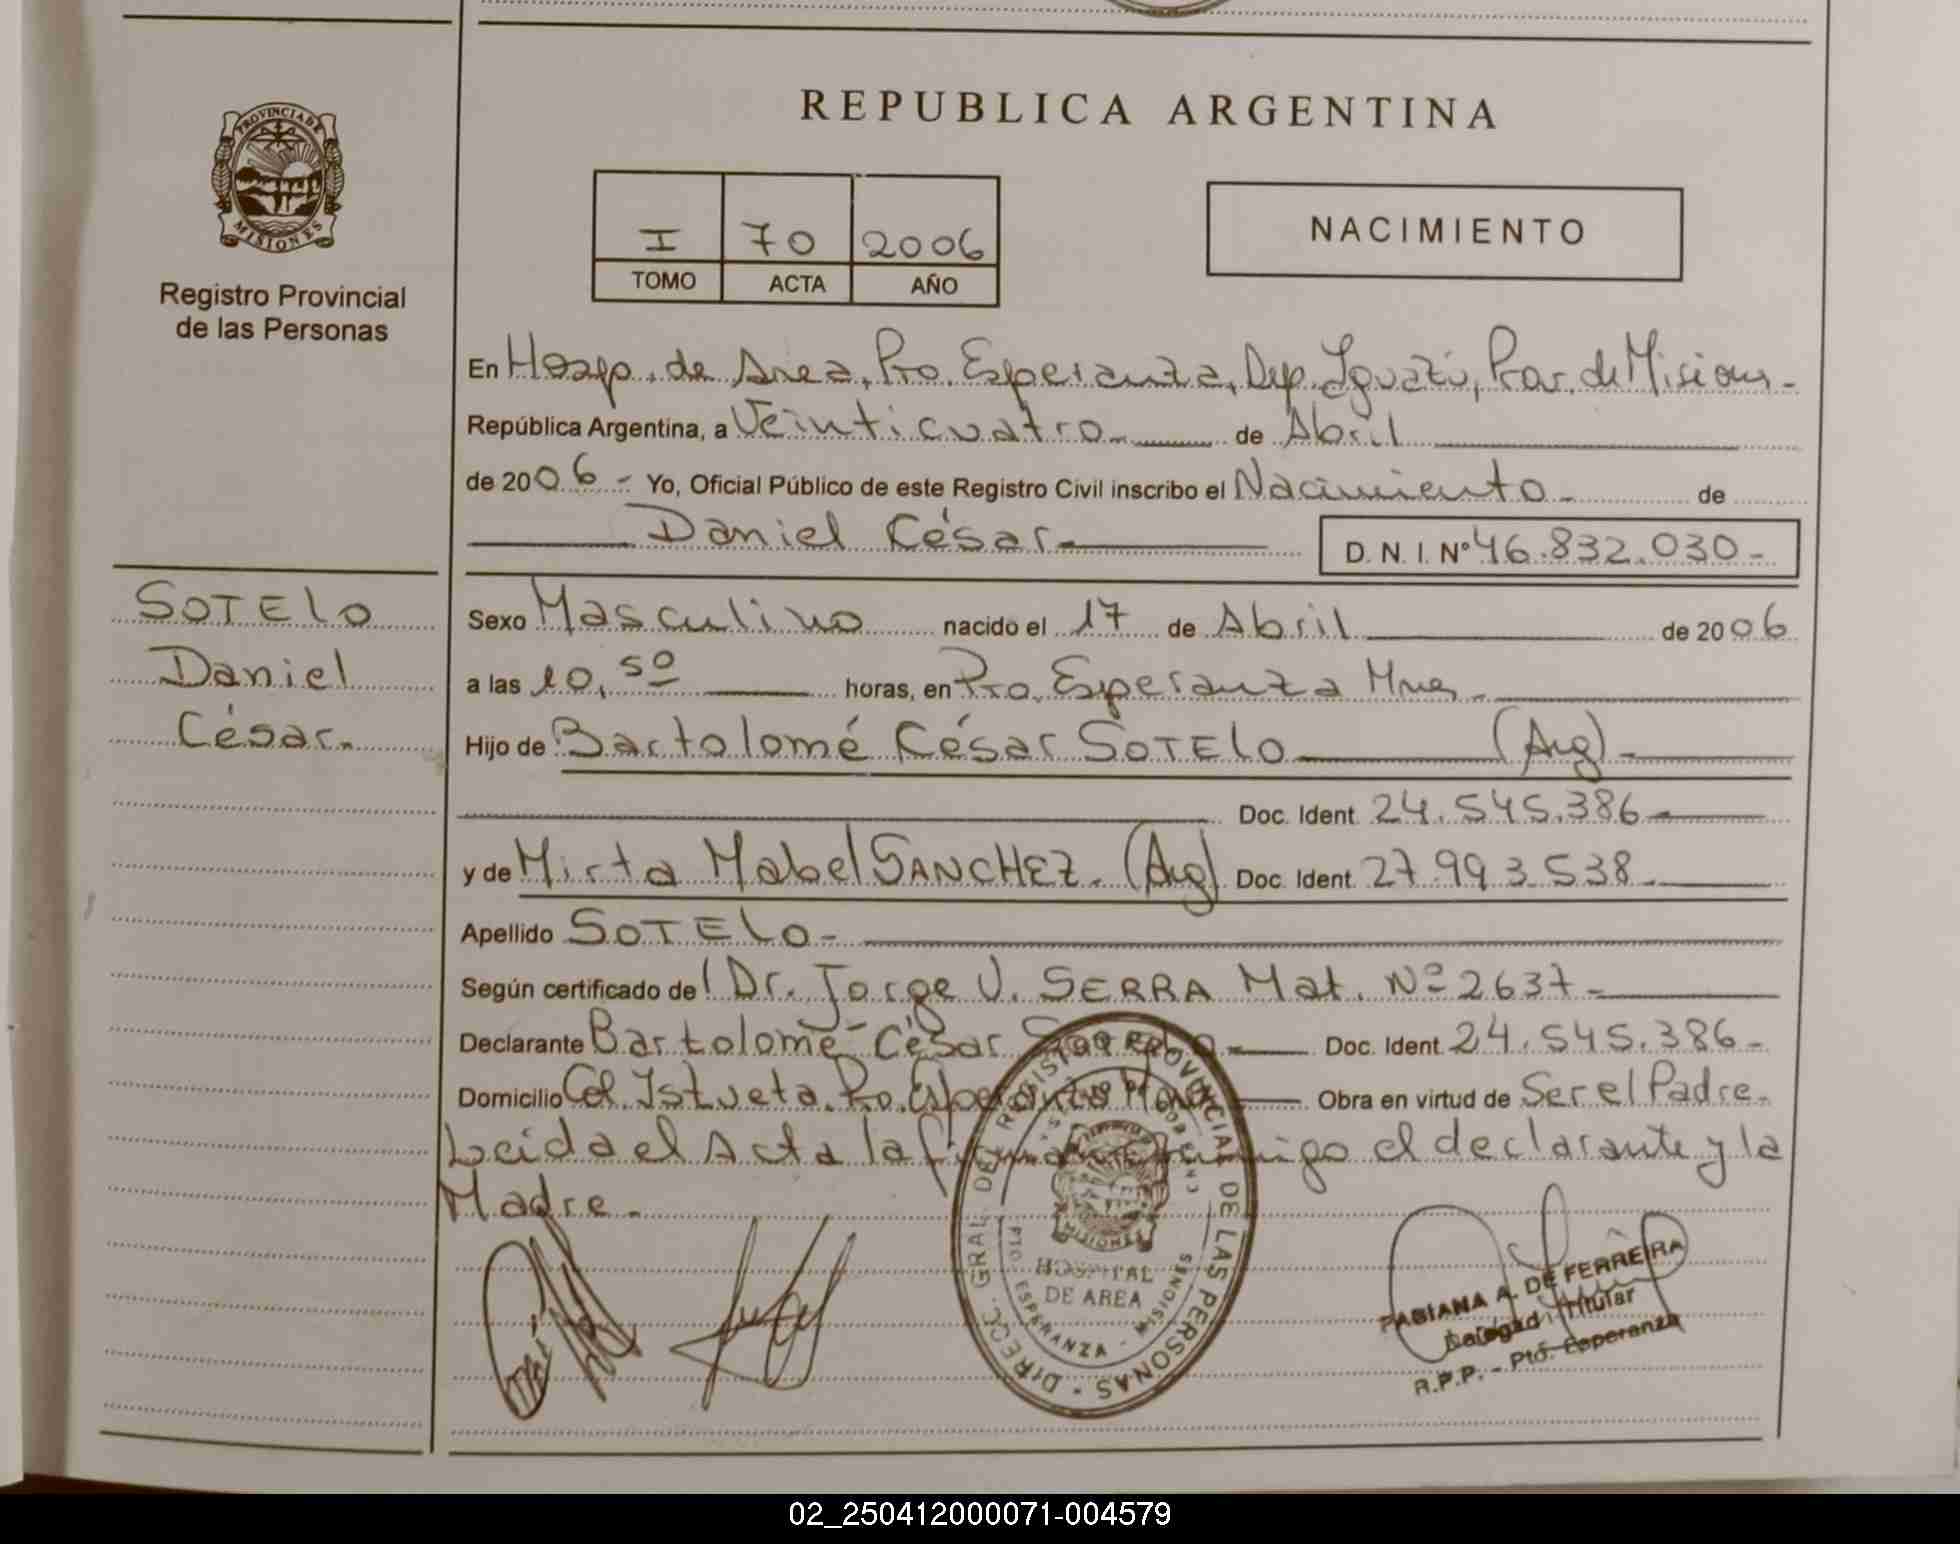 REPUBLICA ARGENTINA
PROVINCIA DE
MISIONES
Registro Provincial
de las Personas
I 70 2006
TOMO ACTA AÑO
NACIMIENTO
En Hosp. de Area, Pto. Esperanza, Dep. Iguazú, Prov. de Misiones -
República Argentina, a Veinticuatro de Abril
de 2006 - Yo, Oficial Público de este Registro Civil inscribo el Nacimiento - de
Daniel César -
D. N. I. N° 46.832.030 -
SOTELO
Daniel
César.
Sexo Masculino nacido el 17 de Abril de 2006
a las 10,50 horas, en Pto. Esperanza Mnes -
Hijo de Bartolomé César SOTELO (Arg) -
Doc. Ident. 24.545.386 -
y de Mirta Mabel SANCHEZ. (Arg) Doc. Ident. 27.993.538 -
Apellido SOTELO -
Según certificado del Dr. Jorge V. SERRA Mat. Nº 2637 -
Declarante Bartolomé César Sotelo - Doc. Ident. 24.545.386 -
Domicilio Col. Istueta. Pto. Esperanza Mnes Obra en virtud de Ser el Padre.
Leida el Acta la firman conmigo el declarante y la
Madre -
DIRECC. GRAL. DEL REGISTRO PROVINCIAL DE LAS PERSONAS
MISIONES
HOSPITAL
DE AREA
PTO. ESPERANZA - MISIONES
FABIANA A. DE FERREIRA
Delegad Titular
R.P.P. - Pto. Esperanza
02_250412000071-004579